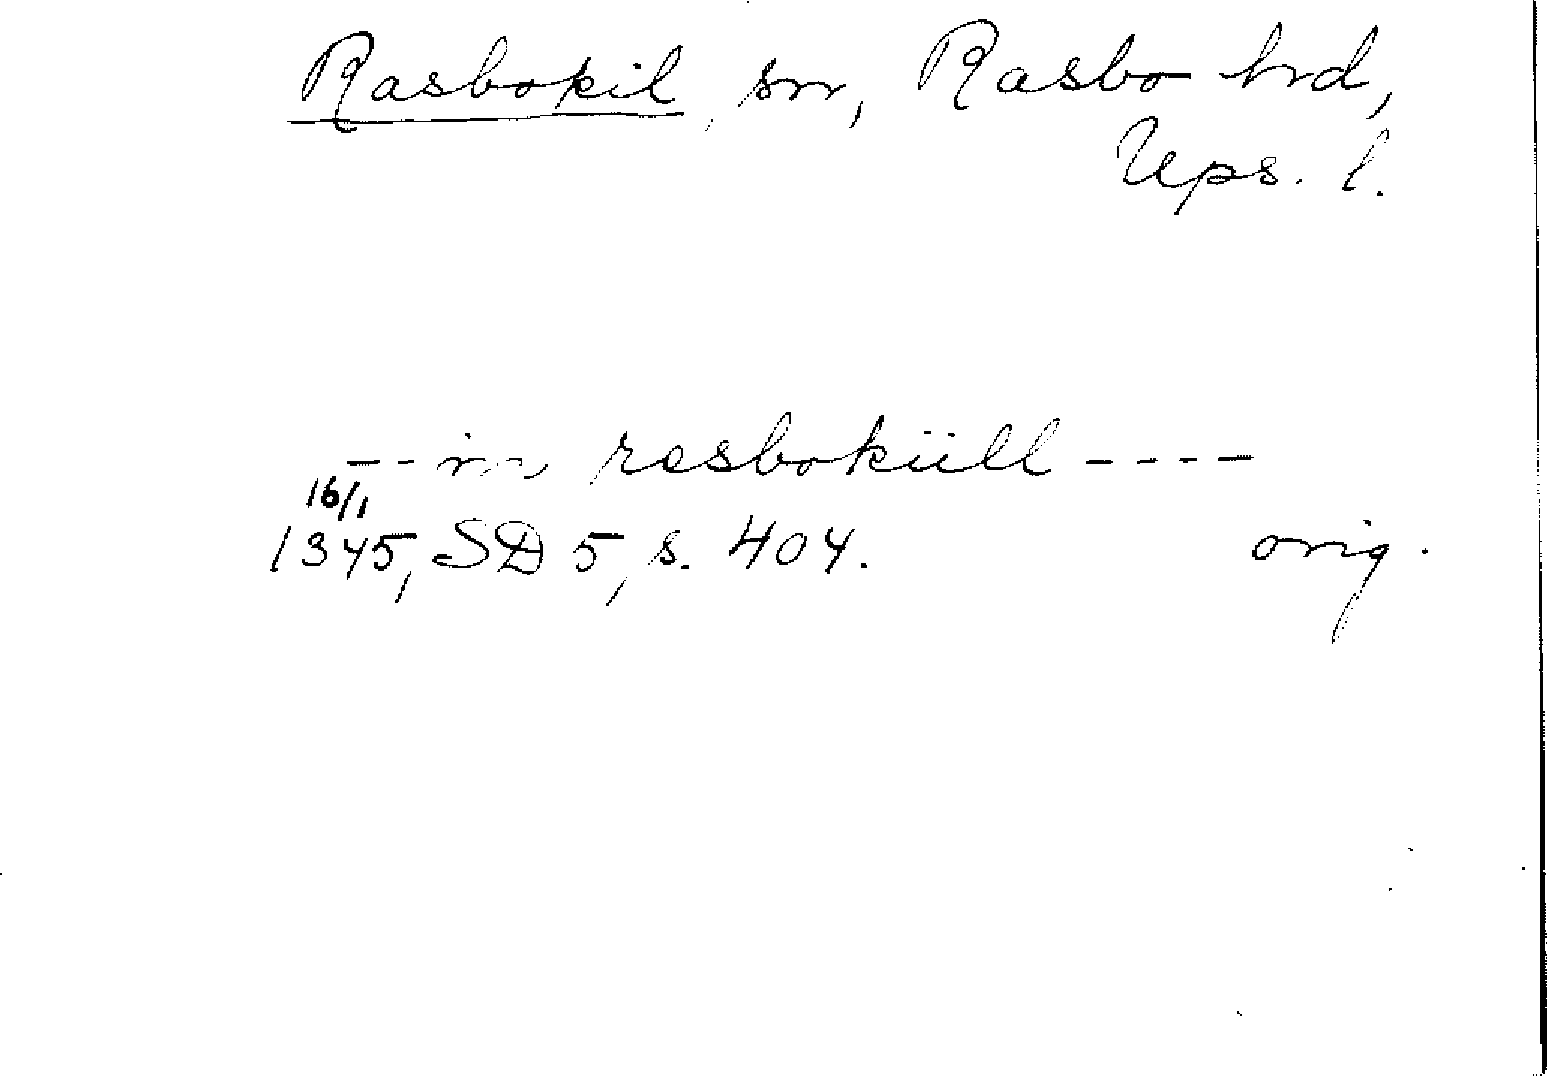 Rasbokil, sn, Rasbo hrd,
Ups. l.
-- in resboküll ----
16/1
1345, SD 5, s. 404. orig.